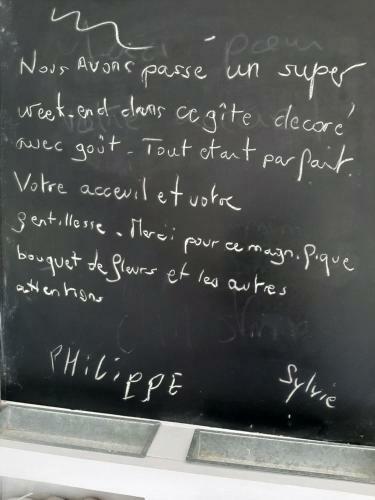 Nous Avons passé un super
week-end dans ce gîte decoré
avec goût - Tout etait parfait.
Votre acceuil et votre
gentillesse. Merci pour ce magnifique
bouquet de fleurs et les autres
attentions
PHiLiPPE
Sylvie